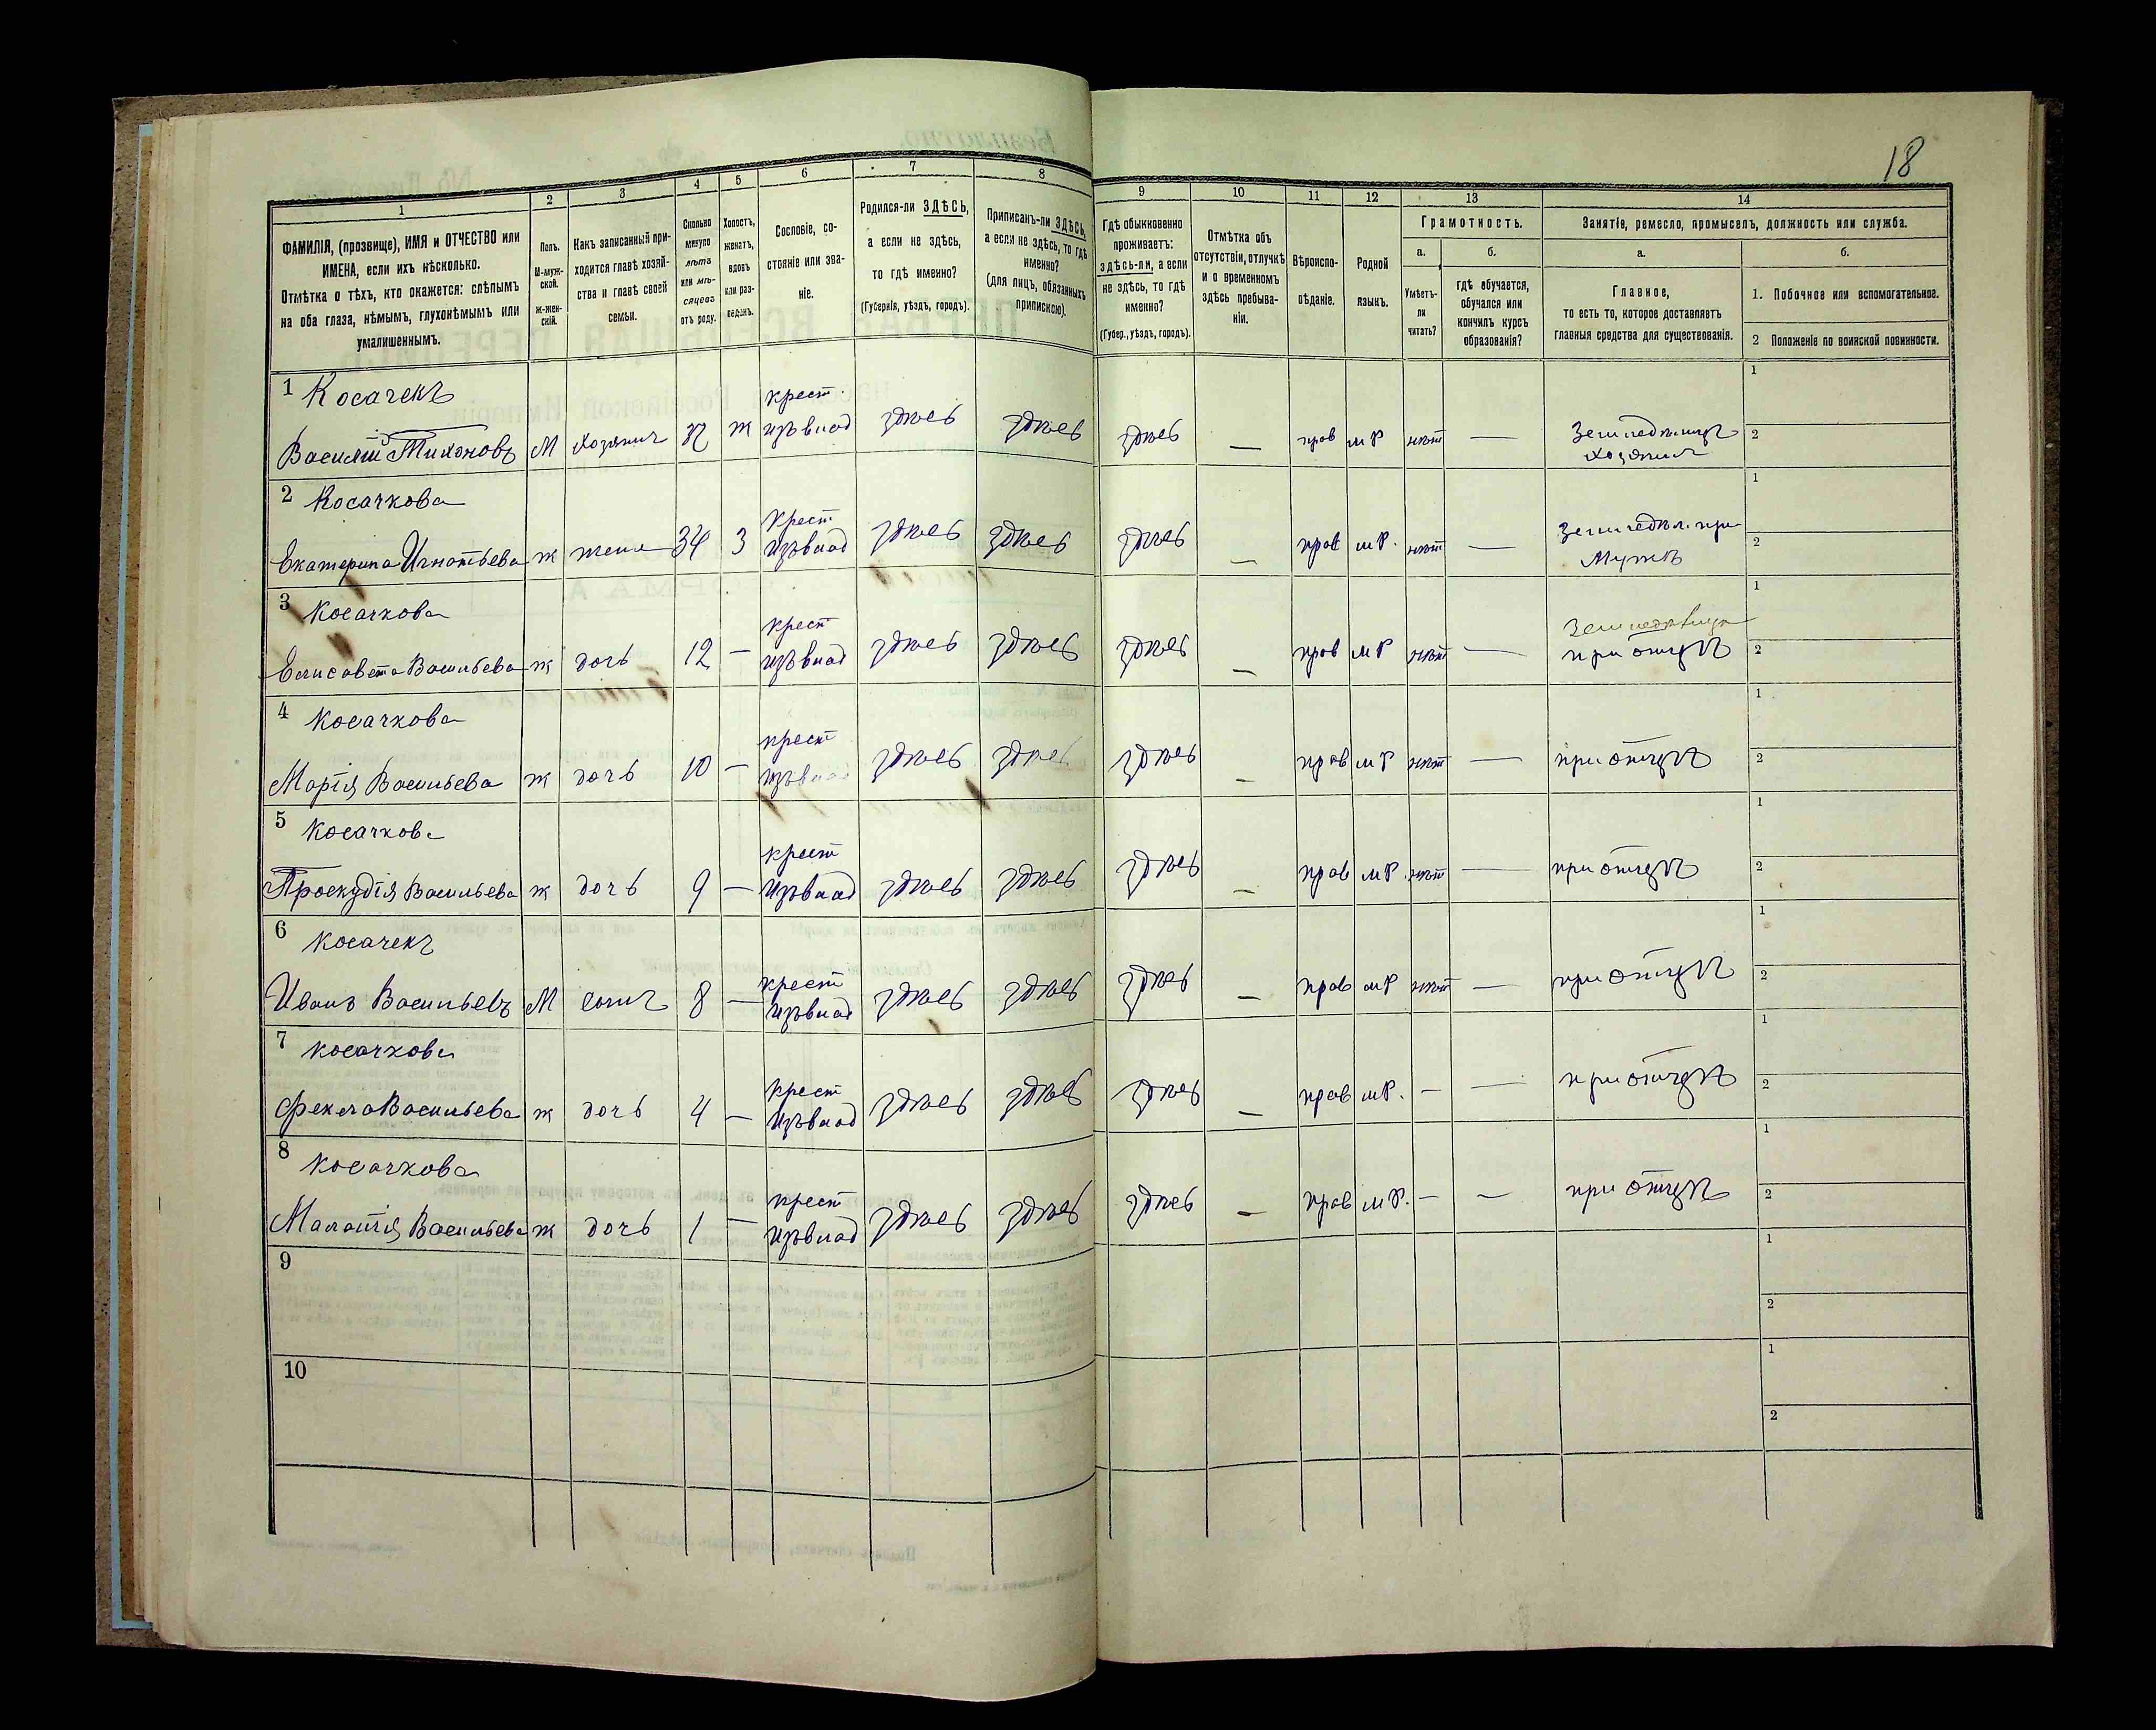 18
1
2
3
4
5
6
7
8
9
10
11
12
13
14
ФАМИЛІЯ, (прозвище), ИМЯ и ОТЧЕСТВО или
ИМЕНА, если ихъ нѣсколько.
Отмѣтка о тѣхъ, кто окажется: слѣпымъ
на оба глаза, нѣмымъ, глухонѣмымъ или
умалишеннымъ.
Полъ.
М-муж-
ской.
Ж-жен-
скій.
Какъ записанный при-
ходится главѣ хозяй-
ства и главѣ своей
семьи.
Сколько
минуло
лѣтъ
или мѣ-
сяцевъ
отъ роду.
Холостъ,
женатъ,
вдовъ
или раз-
веденъ.
Сословіе, со-
стояніе или зва-
ніе.
Родился-ли ЗДѢСЬ,
а если не здѣсь,
то гдѣ именно?
(Губернія, уѣздъ, городъ).
Приписанъ-ли ЗДѢСЬ,
а если не здѣсь, то гдѣ
именно?
(для лицъ, обязанныхъ
припискою).
Гдѣ обыкновенно
проживаетъ:
здѣсь-ли, а если
не здѣсь, то гдѣ
именно?
(Губер., уѣздъ, городъ).
Отмѣтка объ
отсутствіи, отлучкѣ
и о временномъ
здѣсь пребыва-
ніи.
Вѣроиспо-
вѣданіе.
Родной
языкъ.
Грамотность.
а.
Умѣетъ-
ли
читать?
б.
гдѣ обучается,
обучался или
кончилъ курсъ
образованія?
Занятіе, ремесло, промыселъ, должность или служба.
а.
Главное,
то есть то, которое доставляетъ
главныя средства для существованія.
б.
1. Побочное или вспомогательное.
2 Положеніе по воинской повинности.
1 Косачекъ крест 1
Василій Тихоновъ М хозяинъ ж изъ влад здѣсь здѣсь здѣсь — прав м Р нѣтъ — Земледѣлецъ 2
хозяинъ
2 Косачкова крест 1
Екатерина Игнатьева ж жена 34 З изъ влад здѣсь здѣсь здѣсь — прав м Р. нѣтъ — Земледѣл. при 2
мужѣ
3 Косачкова крест 1
Елисавета Васильева ж дочь 12 — изъ влад здѣсь здѣсь здѣсь — прав м Р нѣтъ — при отцѣ 2
4 Косачкова крест 1
Марія Васильева ж дочь 10 — изъ влад здѣсь здѣсь здѣсь — прав м Р нѣтъ — при отцѣ 2
5 Косачкова крест 1
Проскудія Васильева ж дочь 9 — изъ влад здѣсь здѣсь здѣсь — прав м Р. нѣтъ — при отцѣ 2
6 Косачекъ крест 1
Иванъ Васильевъ М сынъ 8 — изъ влад здѣсь здѣсь здѣсь — прав м Р нѣтъ — при отцѣ 2
7 Косачкова крест 1
Фекла Васильева ж дочь 4 — изъ влад здѣсь здѣсь здѣсь — прав м Р. — — при отцѣ 2
8 Косачкова крест 1
Малатія Васильева ж дочь 1 — изъ влад здѣсь здѣсь здѣсь — прав м Р. — — при отцѣ 2
9 1
2
10 1
2